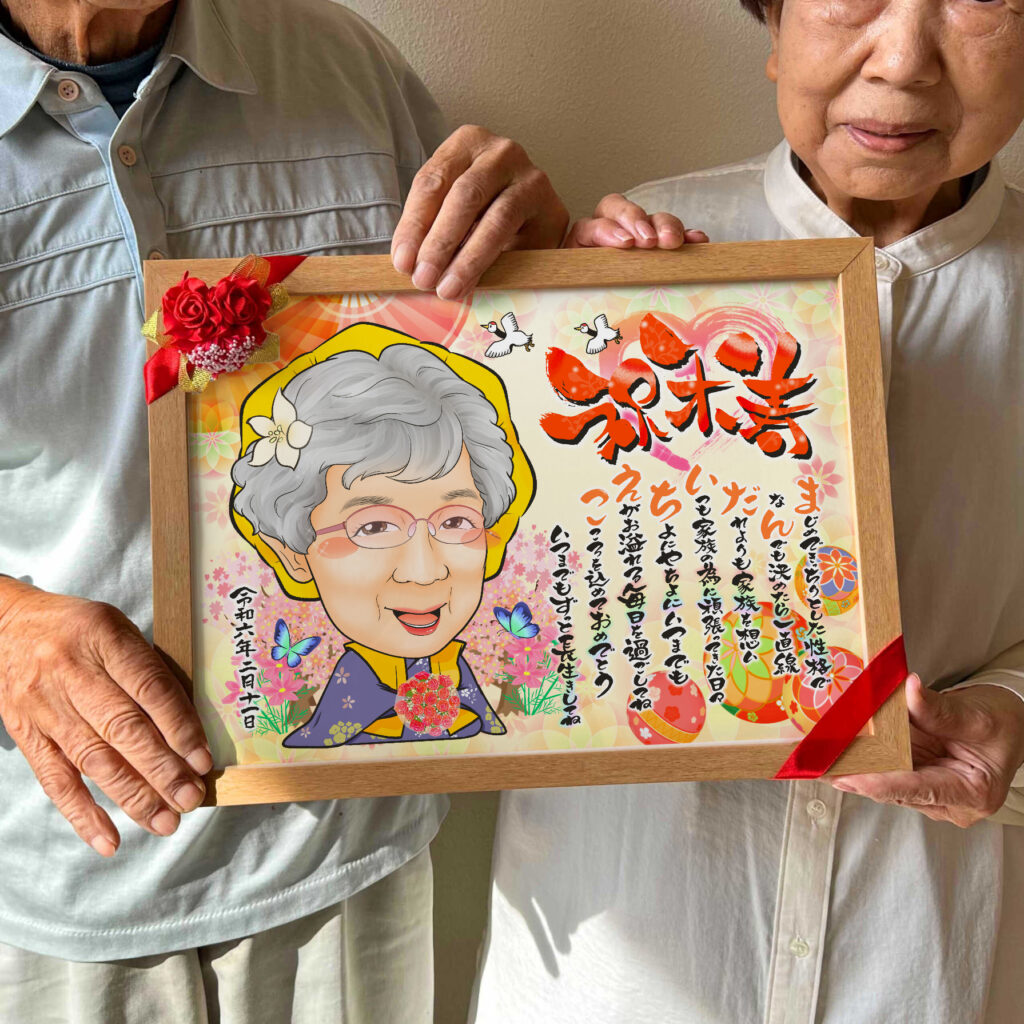 祝米寿
まじめできっちりとした性格で
なんでも決めたら一直線
だれよりも家族を想い
いつも家族の為に頑張ってきた日々
ちよにやちよにいつまでも
えがお溢れる毎日を過ごしてね
こころを込めておめでとう
いつまでもずっと長生きしてね
令和六年二月十一日